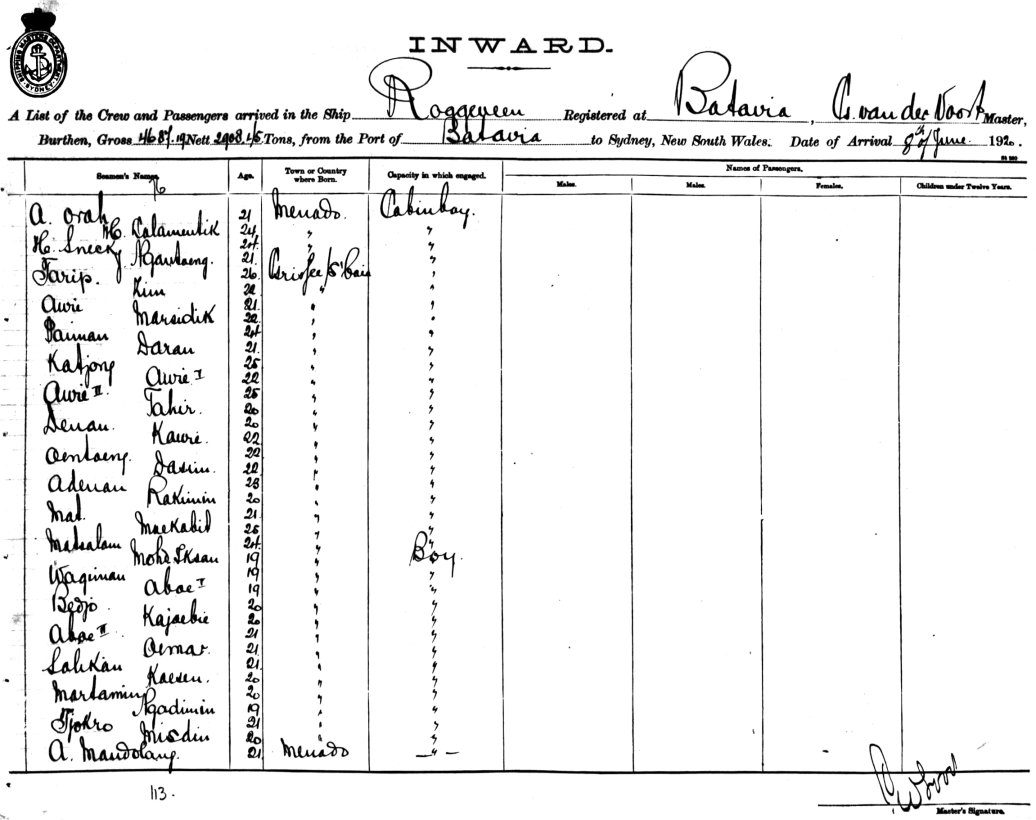 SHIPPING MASTERS DEPARTMENT SYDNEY
INWARD.
A List of the Crew and Passengers arrived in the Ship Roggeveen Registered at Batavia, C. van der Voort Master,
Burthen, Gross 4687.19 Nett 2908.45 Tons, from the Port of Batavia to Sydney, New South Wales. Date of Arrival 8th of June 1920.
Seamen's Names. Age. Town or Country where Born. Capacity in which engaged. Names of Passengers.
Males. Males. Females. Children under Twelve Years.
76
A. Orah 21 Menado. Cabinboy.
H. Lalamentik 24 " "
H. Sneck 24 " "
Ngantoeng. 21 " "
Tarip. 26 Grissee/S'baia "
Kim 22 " "
Awie 21 " "
Marsidik 22 " "
Paiman 24 " "
Daran 21 " "
Katjong 25 " "
Awie I 22 " "
Awie II 25 " "
Tahir. 20 " "
Denan. 20 " "
Kawi. 22 " "
Oentoeng. 22 " "
Dasim 22 " "
Adenan 28 " "
Rakimin 20 " "
Mat. 21 " "
Maekabit 25 " "
Matsalam 24 " "
Moha Iksan 19 " Boy.
Waginian 19 " "
Aboe I 19 " "
Bedjo. 20 " "
Kajaebie 20 " "
Aboe II 21 " "
Oemar. 21 " "
Salikan 21 " "
Kaesen. 20 " "
Martamin 20 " "
Ngadimin 19 " "
Tjokro 21 " "
Misdin 20 " "
A. Mandolang. 21 Menado "
113.
Master's Signature.